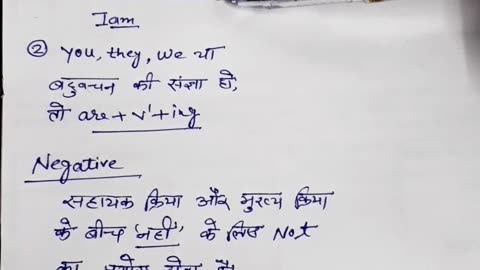 I am
② you, they, we या
बहुवचन की संज्ञा हो,
तो are + v' + ing
Negative
सहायक क्रिया और मुख्य क्रिया
के बीच 'नहीं' के लिए Not
का है